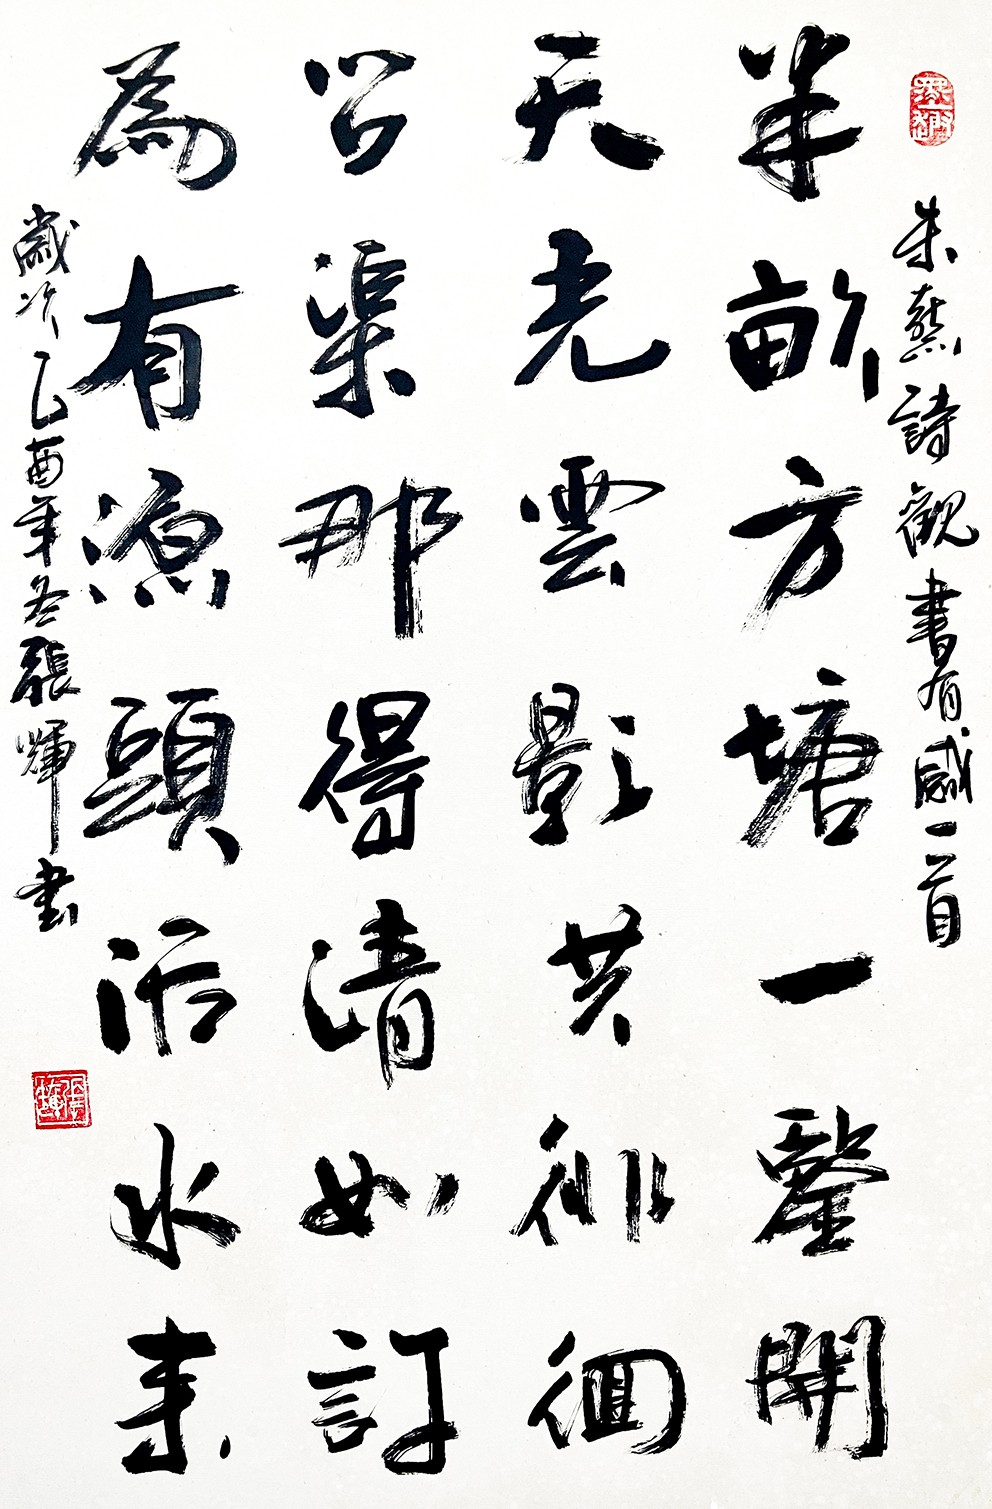 朱熹詩觀書有感一首
半畝方塘一鑒開
天光雲影共徘徊
問渠那得清如許
為有源頭活水來
歲次乙酉年冬張輝書
張輝